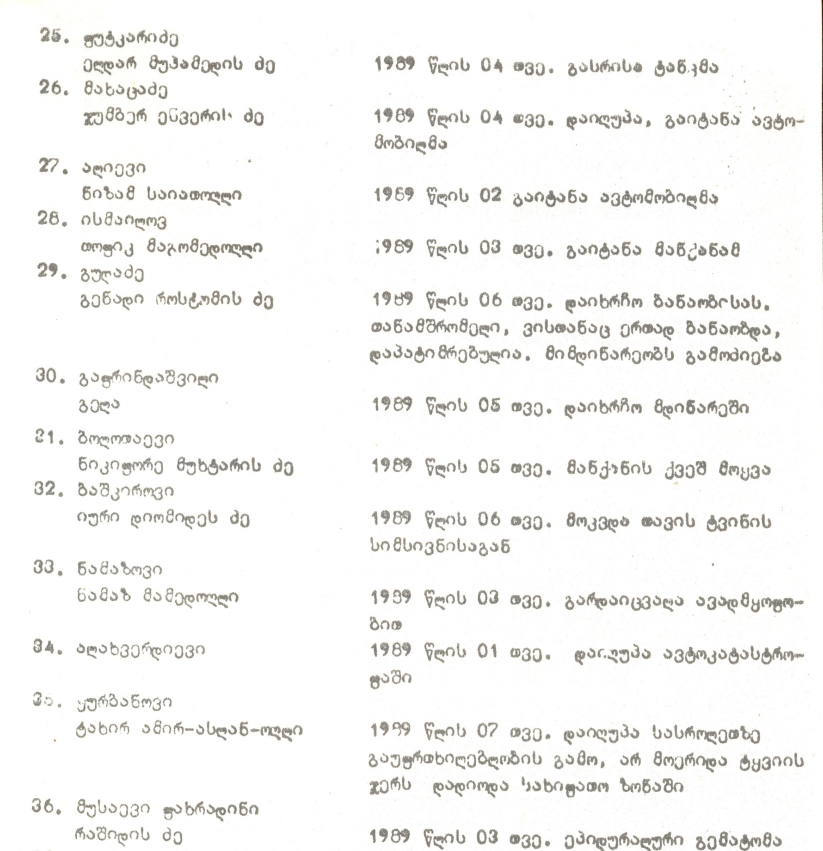 25. ფუტკარიძე
ელდარ მუჰამედის ძე 1989 წლის 04 თვე. გასრისა ტანკმა
26. მახაცაძე
ჯუმბერ ენვერის ძე 1989 წლის 04 თვე. დაიღუპა, გაიტანა ავტო-
მობილმა
27. ალიევი
ნიზამ საიათოღლი 1989 წლის 02 გაიტანა ავტომობილმა
28. ისმაილოვ
თოფიკ მაგომედოღლი 1989 წლის 03 თვე. გაიტანა მანქანამ
29. გულაძე
გენადი როსტომის ძე 1989 წლის 06 თვე. დაიხრჩო ბანაობისას.
თანამშრომელი, ვისთანაც ერთად ბანაობდა,
დაპატიმრებულია. მიმდინარეობს გამოძიება
30. გაფრინდაშვილი
გელა 1989 წლის 05 თვე. დაიხრჩო მდინარეში
31. ბოლოთაევი
ნიკიფორე მუხტარის ძე 1989 წლის 05 თვე. მანქანის ქვეშ მოყვა
32. ბაშკიროვი
იური დიომიდეს ძე 1989 წლის 06 თვე. მოკვდა თავის ტვინის
სიმსივნისაგან
33. ნამაზოვი
ნამაზ მამედოღლი 1989 წლის 03 თვე. გარდაიცვალა ავადმყოფო-
ბით
34. ალახვერდიევი 1989 წლის 01 თვე. დაიღუპა ავტოკატასტრო-
ფაში
35. ყურბანოვი
ტახირ ამირ-ასლან-ოღლი 1989 წლის 07 თვე. დაიღუპა სასროლეთზე
გაუფრთხილებლობის გამო, არ მოერიდა ტყვიის
ჯერს დადიოდა სახიფათო ზონაში
36. მუსაევი ფახრადინი
რაშიდის ძე 1989 წლის 03 თვე. ეპიდურალური გემატომა